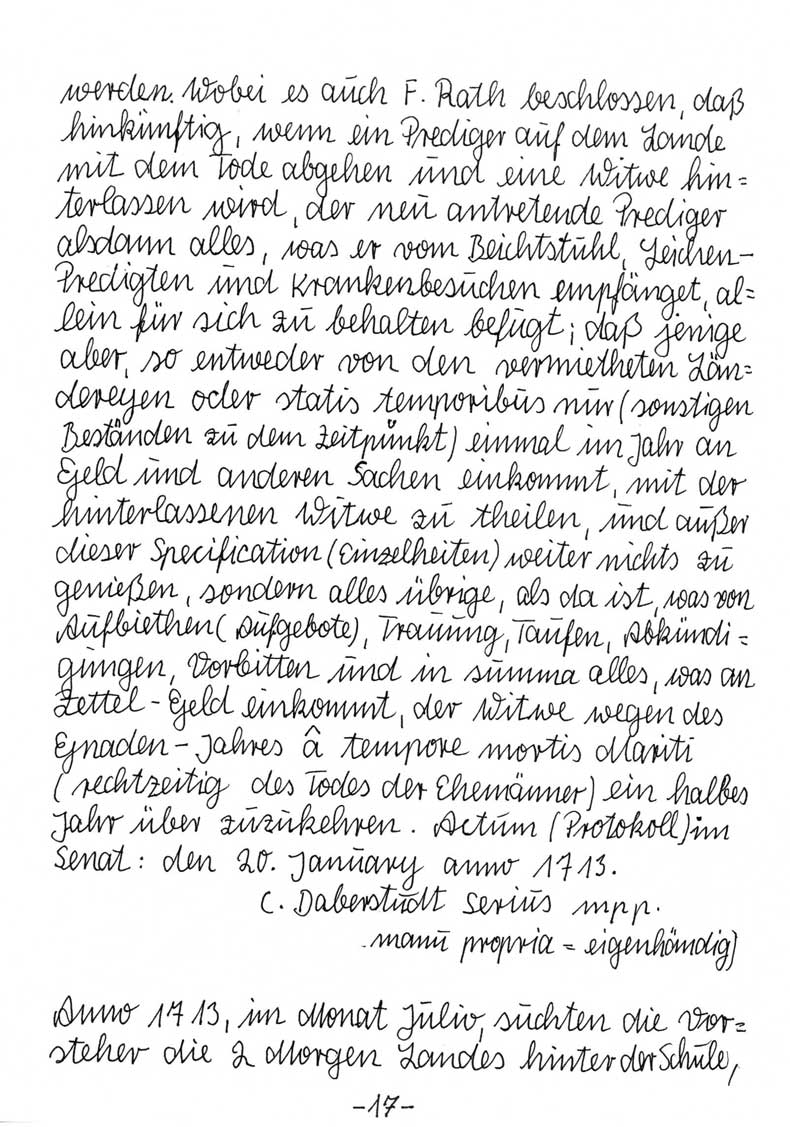 werden. Wobei es auch F. Rath beschlossen, daß
hinkünftig, wenn ein Prediger auf dem Lande
mit dem Tode abgehen und eine Witwe hin=
terlassen wird, der neu antretende Prediger
alsdann alles, was er vom Beichtstuhl, Leichen-
Predigten und Krankenbesuchen empfänget, al=
lein für sich zu behalten befugt; daß jenige
aber, so entweder von den vermietheten Län=
dereyen oder statis temporibus nur (sonstigen
Beständen zu dem Zeitpunkt) einmal im Jahr an
Geld und anderen Sachen einkommt, mit der
hinterlassenen Witwe zu theilen, und außer
dieser Specification (Einzelheiten) weiter nichts zu
genießen, sondern alles übrige, als da ist, was von
Aufbiethen (Aufgebote), Trauung, Taufen, Abkündi=
gungen, Vorbitten und in summa alles, was an
Zettel-Geld einkommt, der Witwe wegen des
Gnaden-Jahres â tempore mortis Mariti
(rechtzeitig des Todes der Ehemänner) ein halbes
Jahr über zuzukehren. Actum (Protokoll) im
Senat: den 20. January anno 1713.
C. Daberstudt Serius mpp.
manu propria = eigenhändig)
Anno 1713, im Monat Julio, suchten die Vor=
steher die 2 Morgen Landes hinter der Schule,
-17-